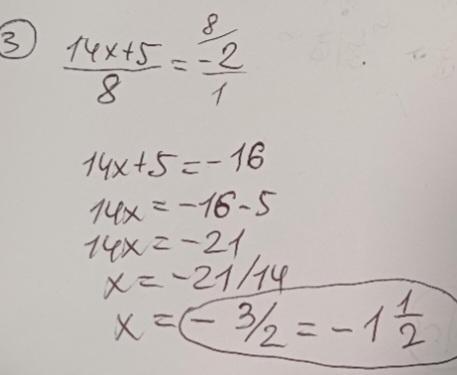 3
(14x+5)/8 = 8/ -2/1
14x+5=-16
14x=-16-5
14x=-21
x=-21/14
x=-3/2=-1 1/2